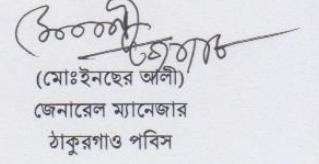 (মোঃইনছের আলী)
জেনারেল ম্যানেজার
ঠাকুরগাও পবিস